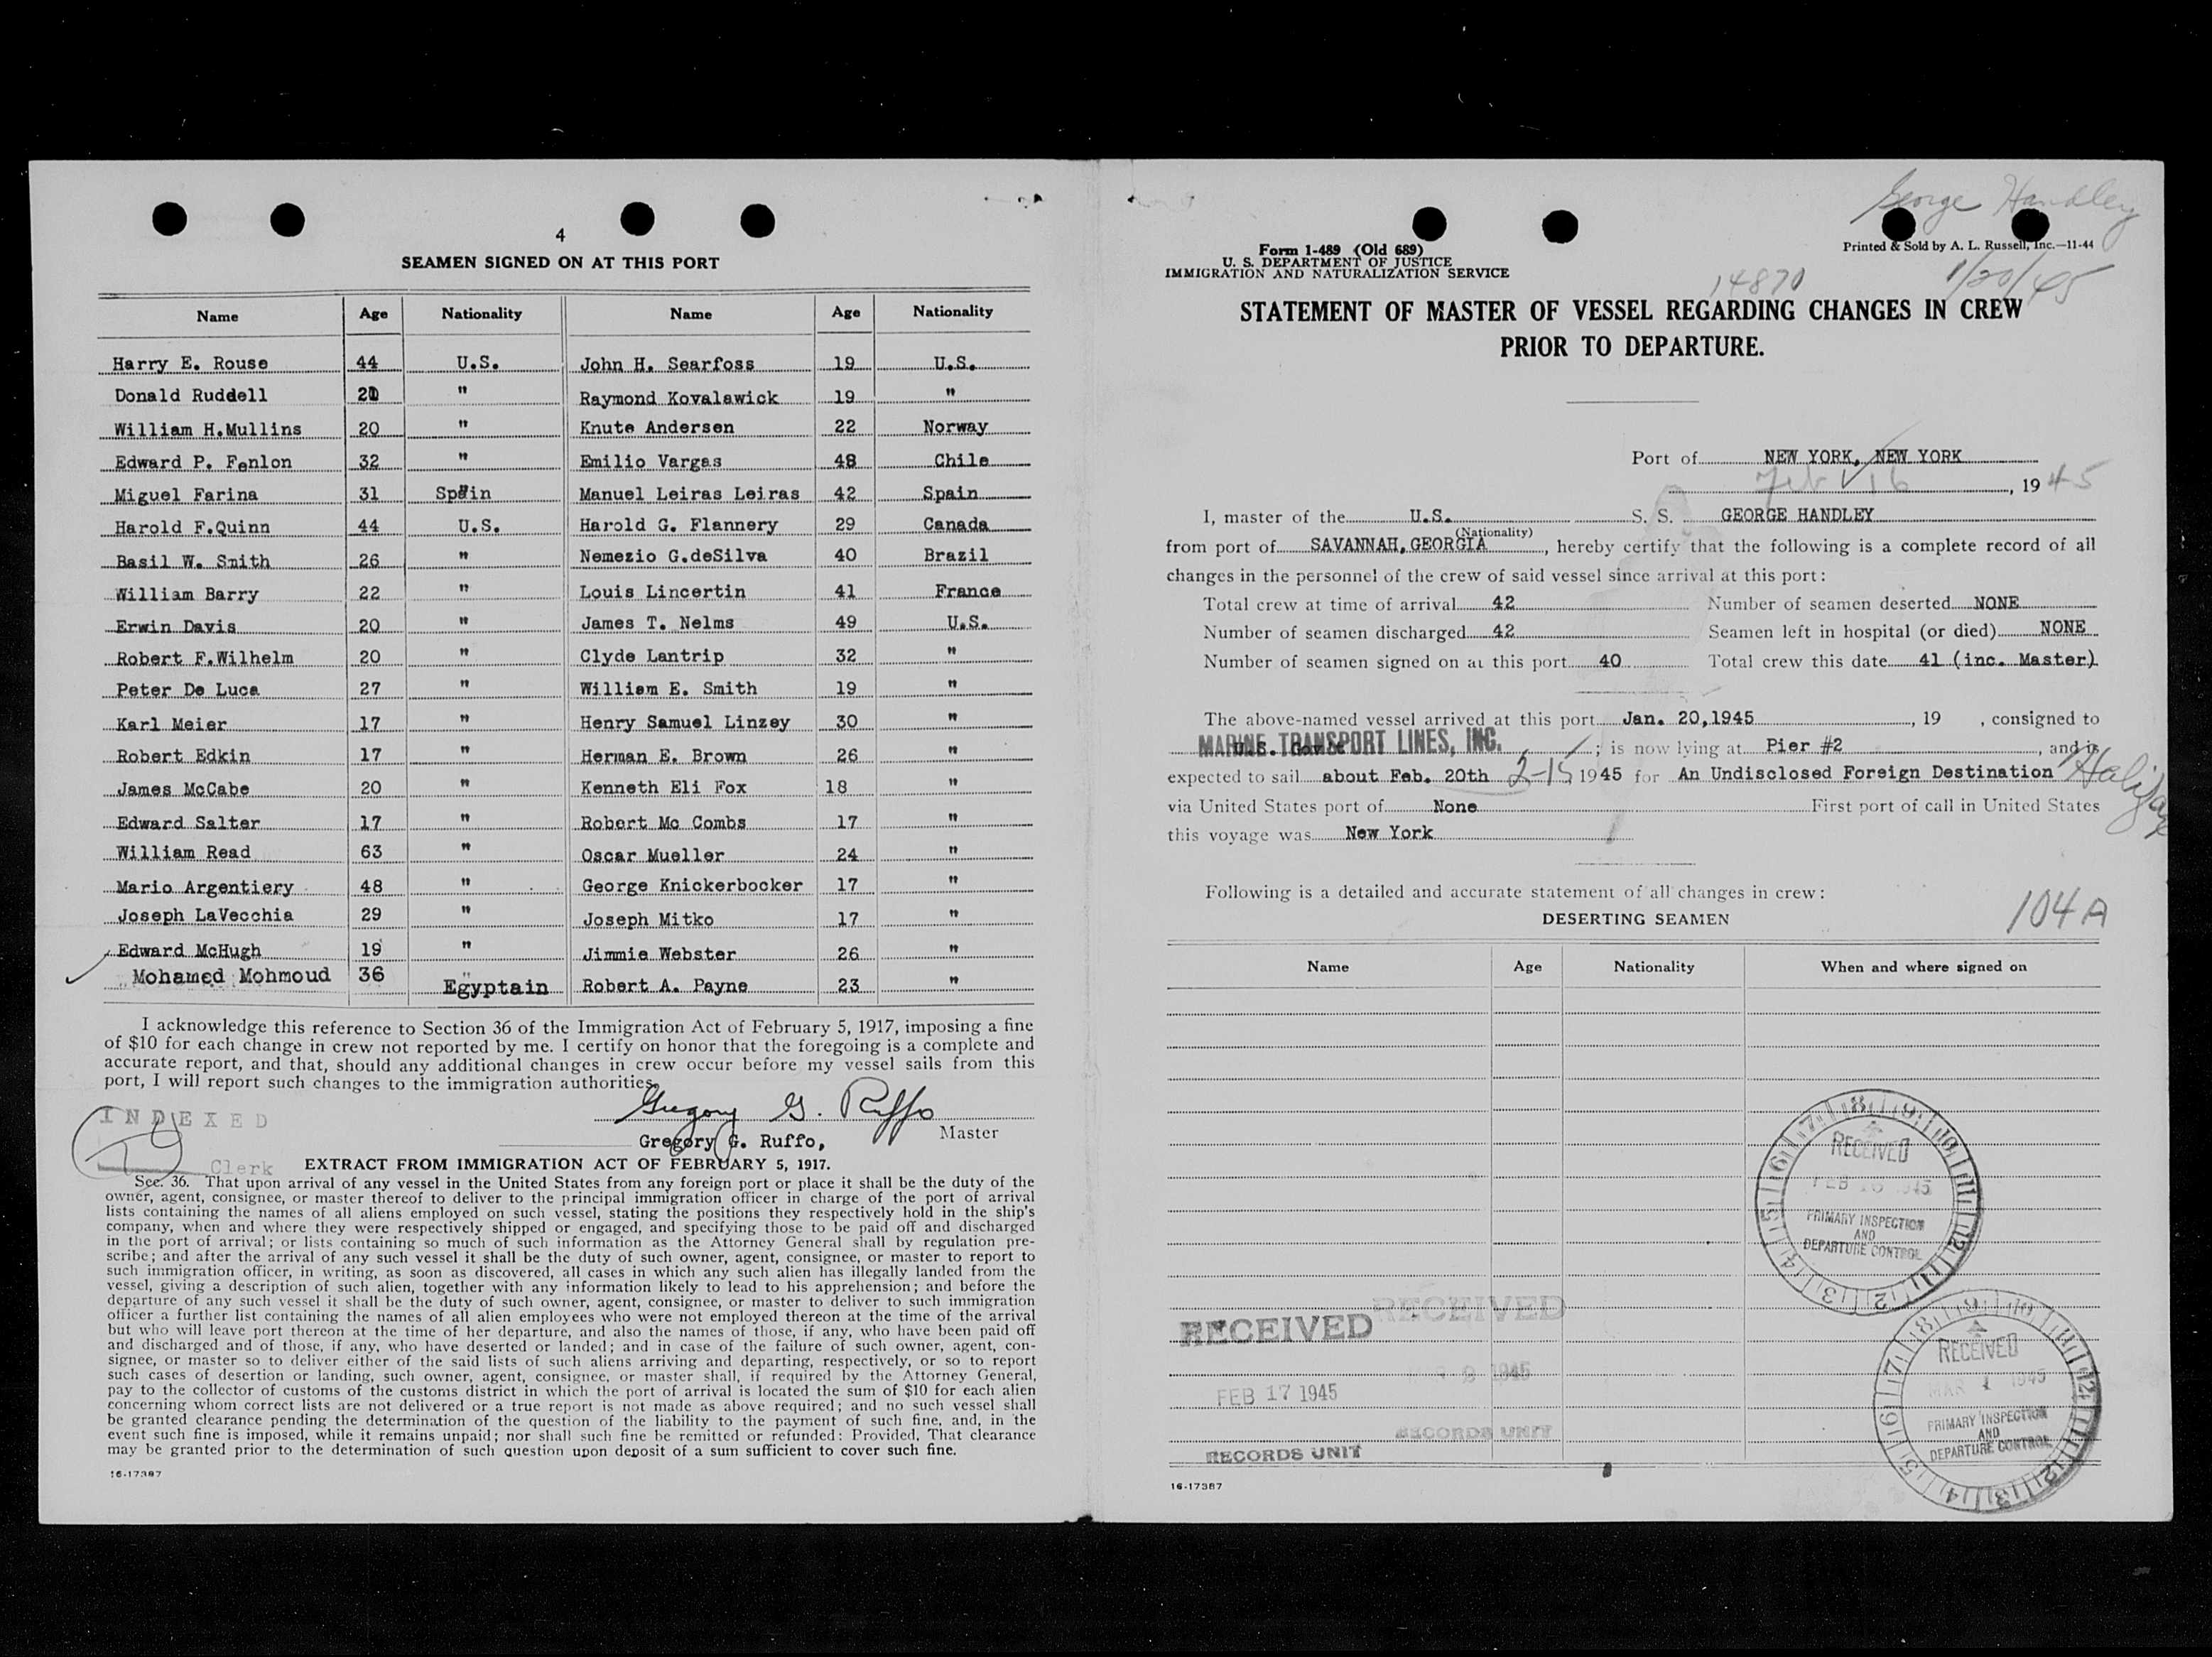 4
SEAMEN SIGNED ON AT THIS PORT
Name Age Nationality Name Age Nationality
Harry E. Rouse 44 U.S. John H. Searfoss 19 U.S.
Donald Ruddell " Raymond Kovalawick 19 "
William H.Mullins 20 " Knute Andersen 22 Norway
Edward P. Fenlon 32 " Emilio Vargas 48 Chile
Miguel Farina 31 Spain Manuel Leiras Leiras 42 Spain
Harold F.Quinn 44 U.S. Harold G. Flannery 29 Canada
Basil W. Smith 26 " Nemezio G.deSilva 40 Brazil
William Barry 22 " Louis Lincertin 41 France
Erwin Davis 20 " James T. Nelms 49 U.S.
Robert F.Wilhelm 20 " Clyde Lantrip 32 "
Peter De Luca 27 " William E. Smith 19 "
Karl Meier 17 " Henry Samuel Linzey 30 "
Robert Edkin 17 " Herman E. Brown 26 "
James McCabe 20 " Kenneth Eli Fox 18 "
Edward Salter 17 " Robert Mc Combs 17 "
William Read 63 " Oscar Mueller 24 "
Mario Argentiery 48 " George Knickerbocker 17 "
Joseph LaVecchia 29 " Joseph Mitko 17 "
Edward McHugh 19 " Jimmie Webster 26 "
Mohamed Mohmoud 36 Egyptain Robert A. Payne 23 "
I acknowledge this reference to Section 36 of the Immigration Act of February 5, 1917, imposing a fine
of $10 for each change in crew not reported by me. I certify on honor that the foregoing is a complete and
accurate report, and that, should any additional changes in crew occur before my vessel sails from this
port, I will report such changes to the immigration authorities.
INDEXED
Gregory G. Ruffo
Gregory G. Ruffo, Master
Clerk
EXTRACT FROM IMMIGRATION ACT OF FEBRUARY 5, 1917.
Sec. 36. That upon arrival of any vessel in the United States from any foreign port or place it shall be the duty of the
owner, agent, consignee, or master thereof to deliver to the principal immigration officer in charge of the port of arrival
lists containing the names of all aliens employed on such vessel, stating the positions they respectively hold in the ship's
company, when and where they were respectively shipped or engaged, and specifying those to be paid off and discharged
in the port of arrival; or lists containing so much of such information as the Attorney General shall by regulation pre-
scribe; and after the arrival of any such vessel it shall be the duty of such owner, agent, consignee, or master to report to
such immigration officer, in writing, as soon as discovered, all cases in which any such alien has illegally landed from the
vessel, giving a description of such alien, together with any information likely to lead to his apprehension; and before the
departure of any such vessel it shall be the duty of such owner, agent, consignee, or master to deliver to such immigration
officer a further list containing the names of all alien employees who were not employed thereon at the time of the arrival
but who will leave port thereon at the time of her departure, and also the names of those, if any, who have been paid off
and discharged and of those, if any, who have deserted or landed; and in case of the failure of such owner, agent, con-
signee, or master so to deliver either of the said lists of such aliens arriving and departing, respectively, or so to report
such cases of desertion or landing, such owner, agent, consignee, or master shall, if required by the Attorney General,
pay to the collector of customs of the customs district in which the port of arrival is located the sum of $10 for each alien
concerning whom correct lists are not delivered or a true report is not made as above required; and no such vessel shall
be granted clearance pending the determination of the question of the liability to the payment of such fine, and, in the
event such fine is imposed, while it remains unpaid; nor shall such fine be remitted or refunded: Provided, That clearance
may be granted prior to the determination of such question upon deposit of a sum sufficient to cover such fine.
16-17387
George Handley
Form 1-489 (Old 689)
U. S. DEPARTMENT OF JUSTICE
IMMIGRATION AND NATURALIZATION SERVICE
Printed & Sold by A. L. Russell, Inc.—11-44
14870 1/20/45
STATEMENT OF MASTER OF VESSEL REGARDING CHANGES IN CREW
PRIOR TO DEPARTURE.
Port of NEW YORK, NEW YORK
Feb 16, 1945
I, master of the U.S. S. S. GEORGE HANDLEY
(Nationality)
from port of SAVANNAH, GEORGIA, hereby certify that the following is a complete record of all
changes in the personnel of the crew of said vessel since arrival at this port:
Total crew at time of arrival 42 Number of seamen deserted NONE
Number of seamen discharged 42 Seamen left in hospital (or died) NONE
Number of seamen signed on at this port 40 Total crew this date 41 (inc. Master)
The above-named vessel arrived at this port Jan. 20,1945, 19 , consigned to
MARINE TRANSPORT LINES, INC. ; is now lying at Pier #2, and is
expected to sail about Feb. 20th 1945 for An Undisclosed Foreign Destination Halifax
via United States port of None First port of call in United States
this voyage was New York
Following is a detailed and accurate statement of all changes in crew:
104A
DESERTING SEAMEN
Name Age Nationality When and where signed on
RECEIVED
FEB 1945
PRIMARY INSPECTION
AND
DEPARTURE CONTROL
RECEIVED
FEB 17 1945
RECORDS UNIT
RECEIVED
1945
RECORDS UNIT
RECEIVED
MAR 1 1945
PRIMARY INSPECTION
AND
DEPARTURE CONTROL
16-17387